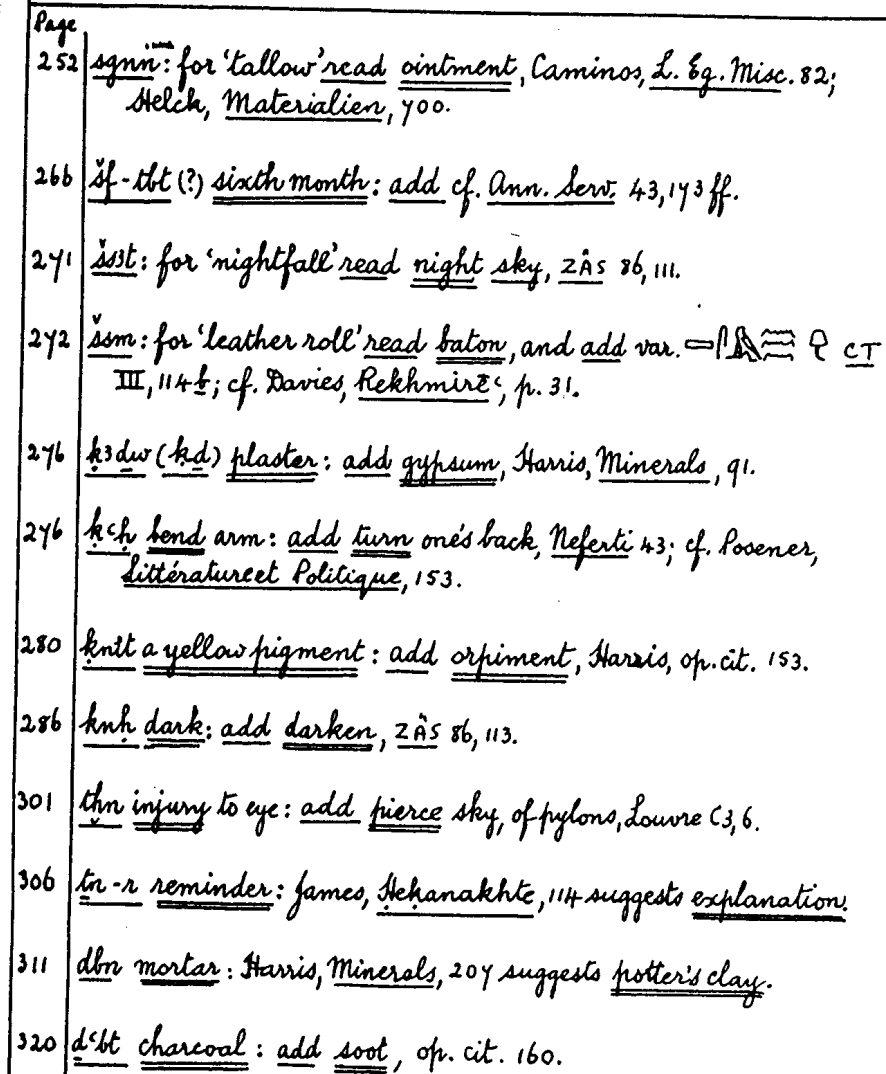 Page
252 sgnn: for 'tallow' read ointment, Caminos, L. Eg. Misc. 82;
Helck, Materialien, 700.
266 šf-ṯbt (?) sixth month: add cf. Ann. Serv. 43, 173 ff.
271 šsꜣt: for 'nightfall' read night sky, ZÄS 86, 111.
272 šsm: for 'leather roll' read baton, and add var. CT
III, 114 b; cf. Davies, Rekhmirēꜥ, p. 31.
276 ḳꜣḏw (ḳḏ) plaster: add gypsum, Harris, Minerals, 91.
276 ḳꜥḥ bend arm: add turn one's back, Neferti 43; cf. Posener,
Littérature et Politique, 153.
280 ḳnı͗t a yellow pigment: add orpiment, Harris, op. cit. 153.
286 knḥ dark: add darken, ZÄS 86, 113.
301 tḫn injury to eye: add pierce sky, of pylons, Louvre C3, 6.
306 ṯn-r reminder: James, Ḥeḳanakhte, 114 suggests explanation.
311 dbn mortar: Harris, Minerals, 207 suggests potter's clay.
320 ḏꜥbt charcoal: add soot, op. cit. 160.